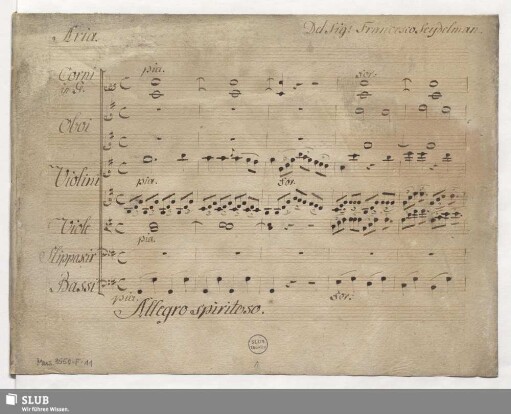 Aria.
Del Sigr Francesco Seydelman.
pia.
for.
Corni
in G.
Oboi
Violini
pia.
for.
Viole
pia.
Bassi
pia.
for.
Allegro spiritoso.
SLUB
1
SLUB
Wir führen Wissen.